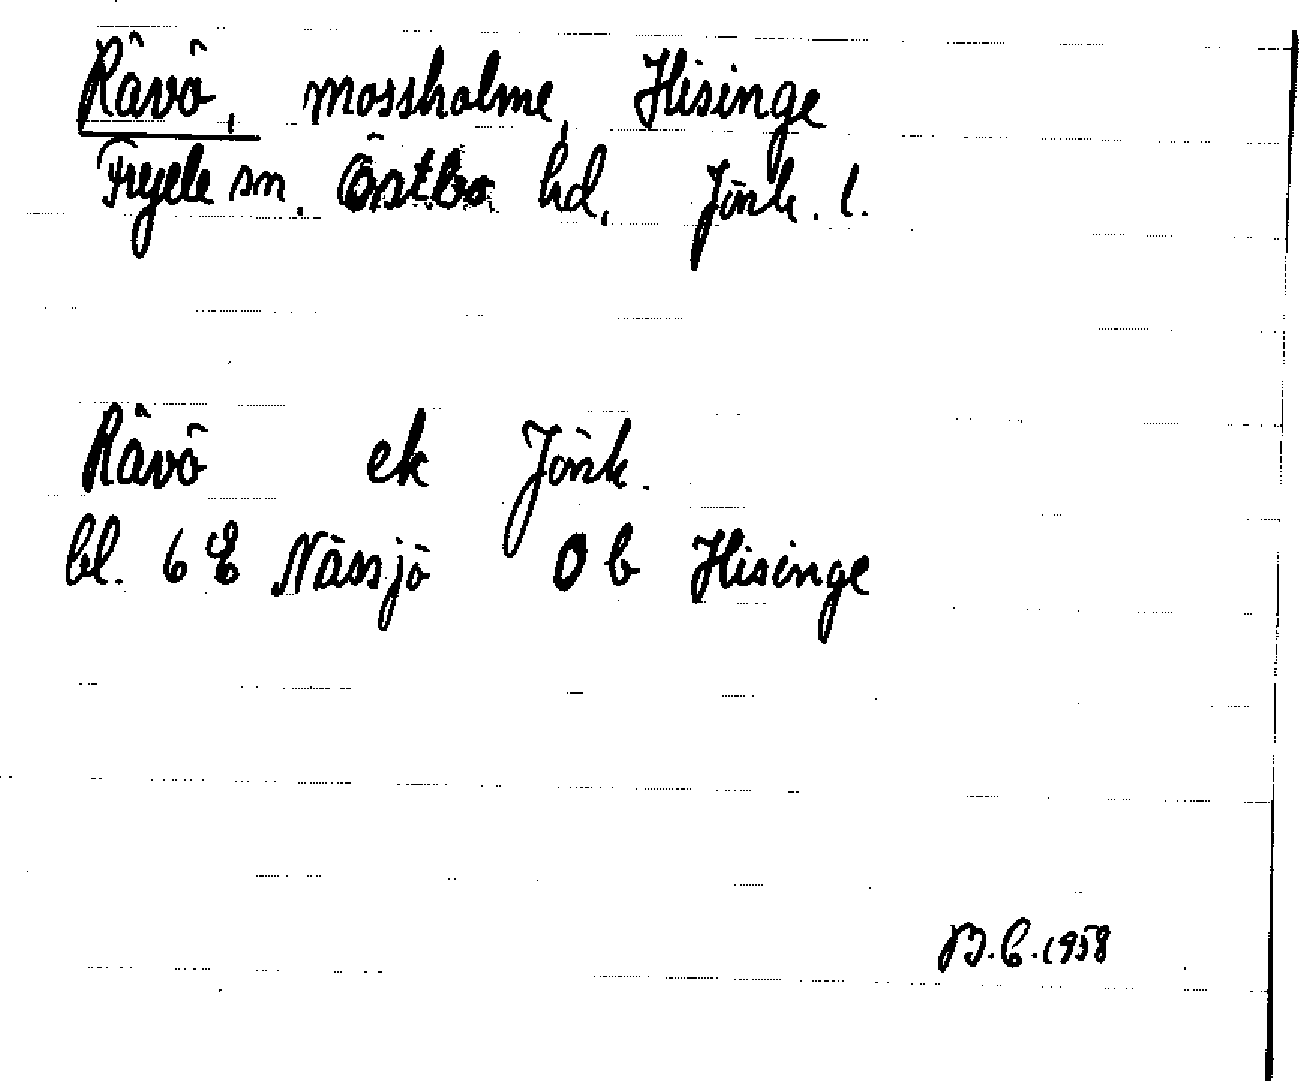 Rävö, mossholme, Hisinge
Fryele sn. Östbo hd, Jönk. l.
Rävö ek Jönk.
bl. 6 E Nässjö 0 b Hisinge
B.E. 1958